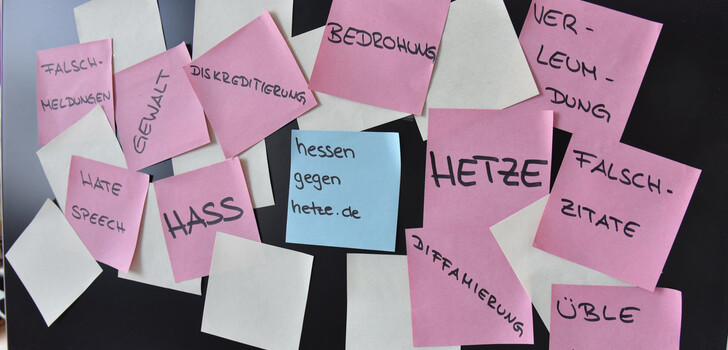 FALSCH-
MELDUNGEN
GEWALT
DISKREDITIERUNG
BEDROHUNG
VER-
LEUM-
DUNG
HATE
SPEECH
HASS
hessen
gegen
hetze.de
HETZE
FALSCH-
ZITATE
DIFFAMIERUNG
ÜBLE